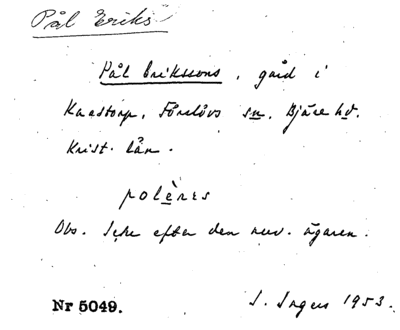 Pål Eriks
Pål Erikssons, gård i
Kaastorp, Förslövs sn, Bjäre hd.
Krist. län.
polèrəs
Obs. Icke efter den nuv. ägaren.
Nr 5049. I. Ingers 1953.